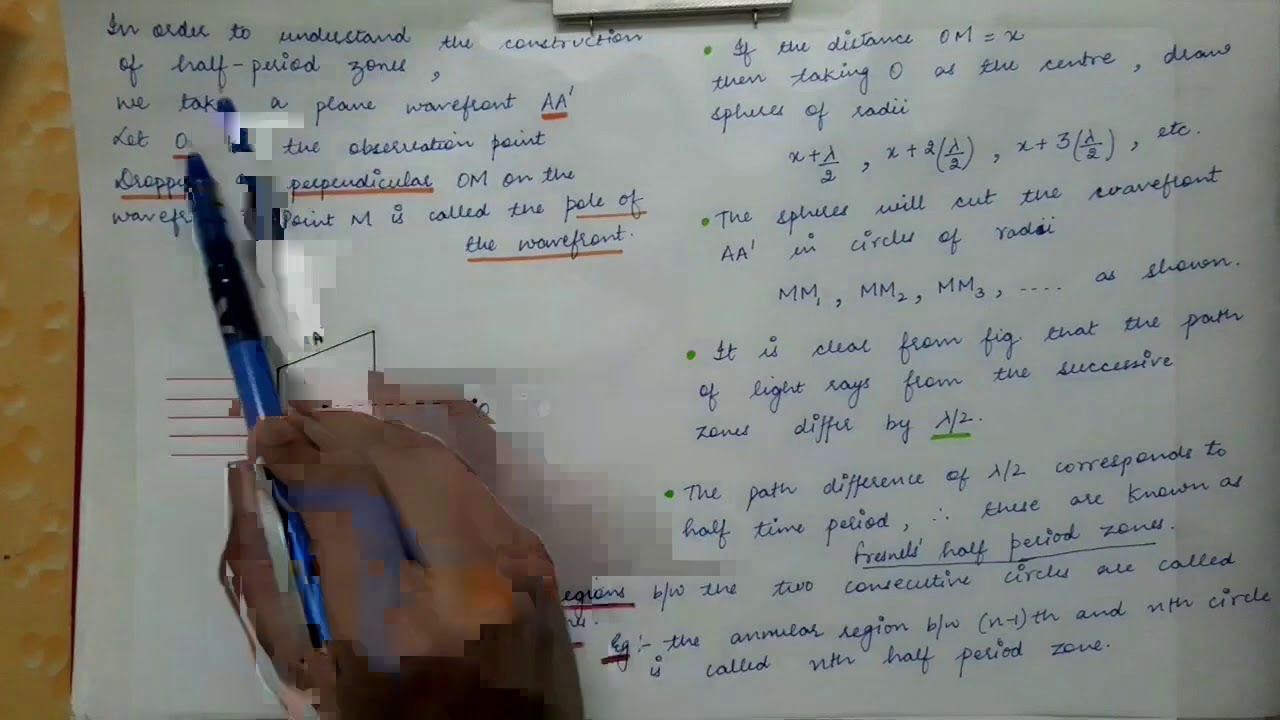 In order to understand the construction
of half-period zones,
we take a plane wavefront AA'
Let O the observation point
perpendicular OM on the
Point M is called the pole of
the wavefront.
A
O
• If the distance OM = x
then taking O as the centre, draw
spheres of radii
x+λ/2, x+2(λ/2), x+3(λ/2), etc.
• The spheres will cut the wavefront
AA' in circles of radii
MM₁, MM₂, MM₃, .... as shown.
• It is clear from fig. that the path
of light rays from the successive
zones differ by λ/2.
• The path difference of λ/2 corresponds to
half time period, ∴ these are known as
fresnels' half period zones.
regions b/w the two consecutive circles are called
Eg:- the annular region b/w (n-1)th and nth circle
is called nth half period zone.